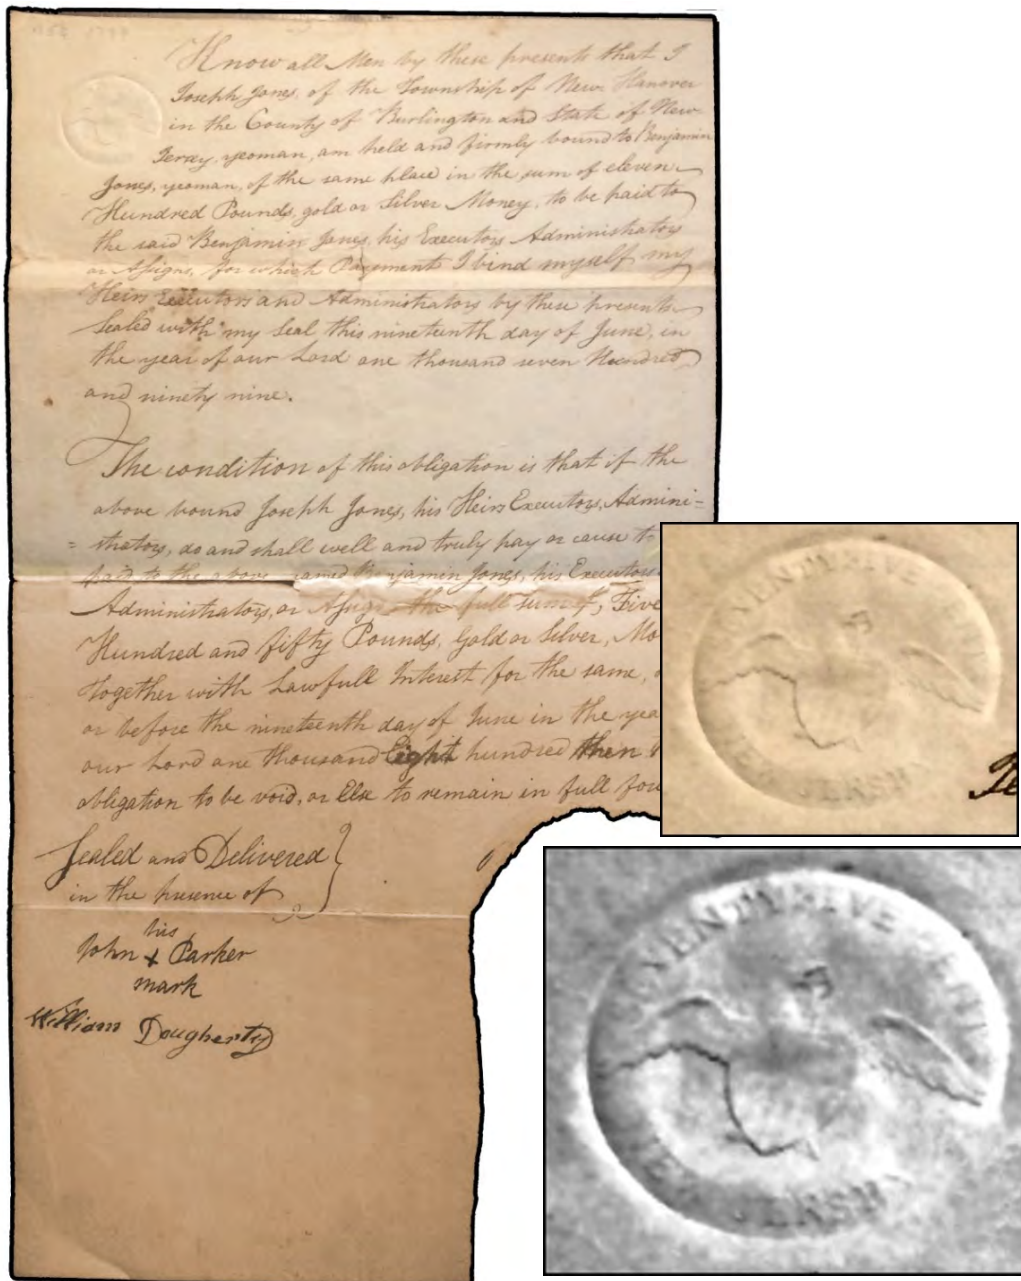 Know all Men by these presents that I
Joseph Jones, of the Township of New Hanover
in the County of Burlington and State of New
Jersey, yeoman, am held and firmly bound to Benjamin
Jones, yeoman, of the same place in the sum of eleven
Hundred Pounds, gold or Silver Money, to be paid to
the said Benjamin Jones, his Executors Administrators
or Assigns, for which Payement I bind myself my
Heirs Executors and Administrators by these presents
Sealed with my Seal this nineteenth day of June, in
the year of our Lord one thousand seven Hundred
and ninety nine.
The condition of this obligation is that if the
above bound Joseph Jones, his Heirs Executors, Admini-
=strators, do and shall well and truly pay or cause to
paid to the above named Benjamin Jones, his Executors
Administrators, or Assigns the full sum of, Five
Hundred and fifty Pounds, Gold or Silver, Mo
together with Lawfull Interest for the same,
or before the nineteenth day of June in the yea
our Lord one thousand Eight hundred then
obligation to be void, or Else to remain in full for
Sealed and Delivered
in the presence of
his
John x Parker
mark
William Dougherty
VENTY FIVE
JERSEY
VENTY FIVE
JERSEY